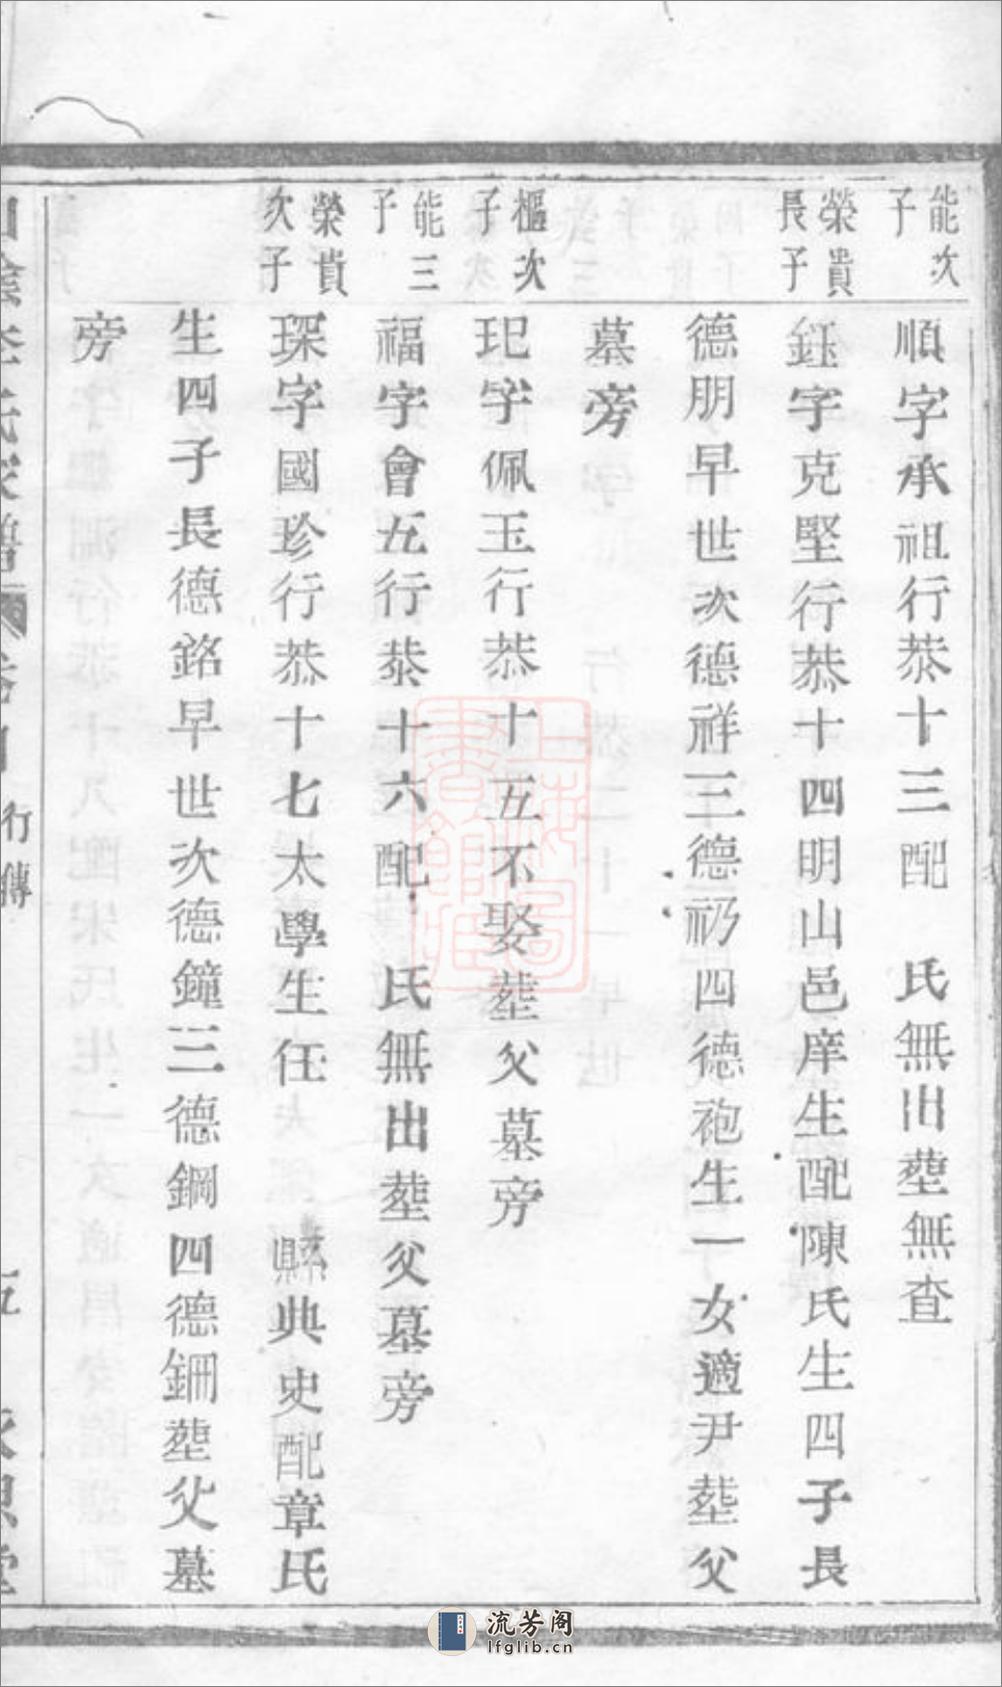 能次子
順字承祖行恭十三配　氏無出塟無查
榮貴長子
鈺字克堅行恭十四明山邑庠生配陳氏生四子長
德朋早世次德祥三德礽四德袍生一女適尹塟父
墓旁
樞次子
玘字佩玉行恭十五不娶塟父墓旁
能三子
福字會五行恭十六配　氏無出塟父墓旁
榮貴次子
琛字國珍行恭十七太學生任　　縣典史配章氏
生四子長德銘早世次德鐘三德鋼四德鈿塟父墓
旁
行傳
上海圖書館藏
流芳阁
lfglib.cn